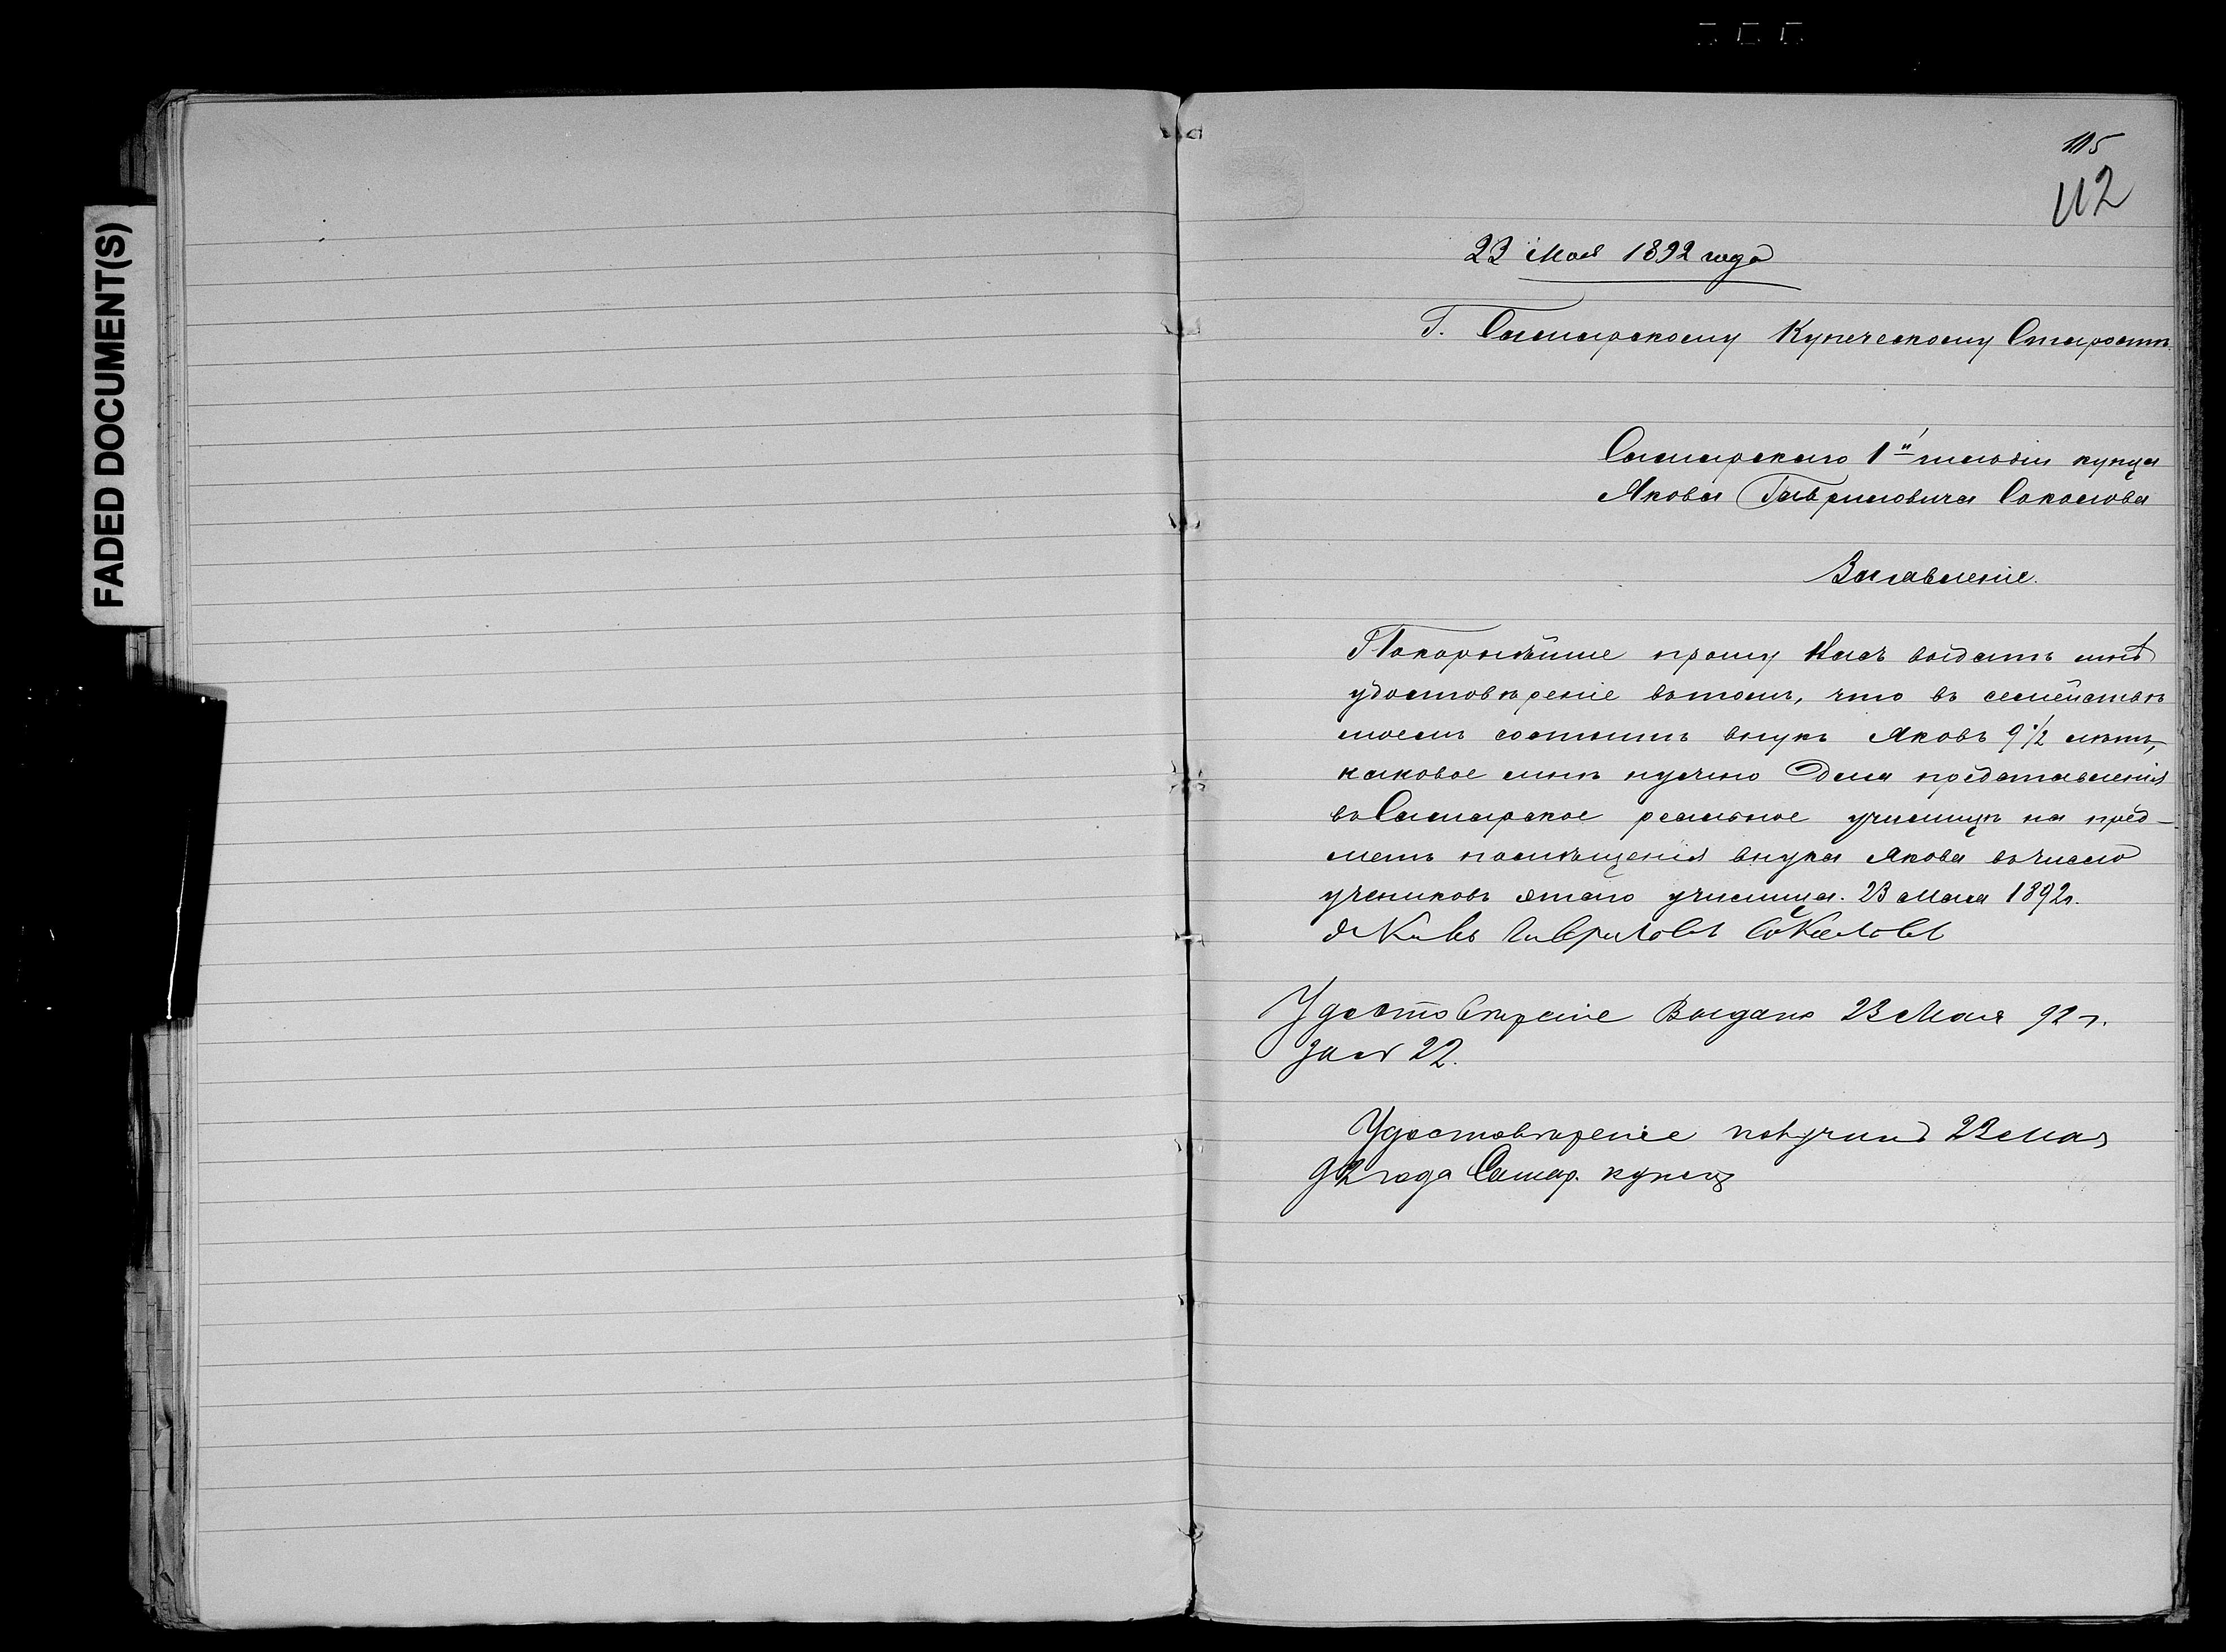 FADED DOCUMENT(S)
115
112
23 Мая 1892 года
Г. Самарскому Купеческому Старостѣ.
Самарскаго 1й гильдіи купца
Якова Гавриловича Соколова
Заявленіе.
Покорнѣйше прошу Васъ выдать мнѣ
удостовѣреніе вътомъ, что въ семействѣ
моемъ состоитъ внукъ Яковъ 9 1/2 лѣтъ,
каковое мнѣ нужно для представленія
въ Самарское реальное училищѣ на пред-
метъ помѣщенія внука Якова въ число
учениковъ этаго училища. 23 Мая 1892 г.
Яковъ Гавриловъ Соколовъ
Удостовѣреніе Выдано 23 Мая 92 г.
за № 22.
Удостовѣреніе получилъ 23 мая
92 года Самар. купецъ